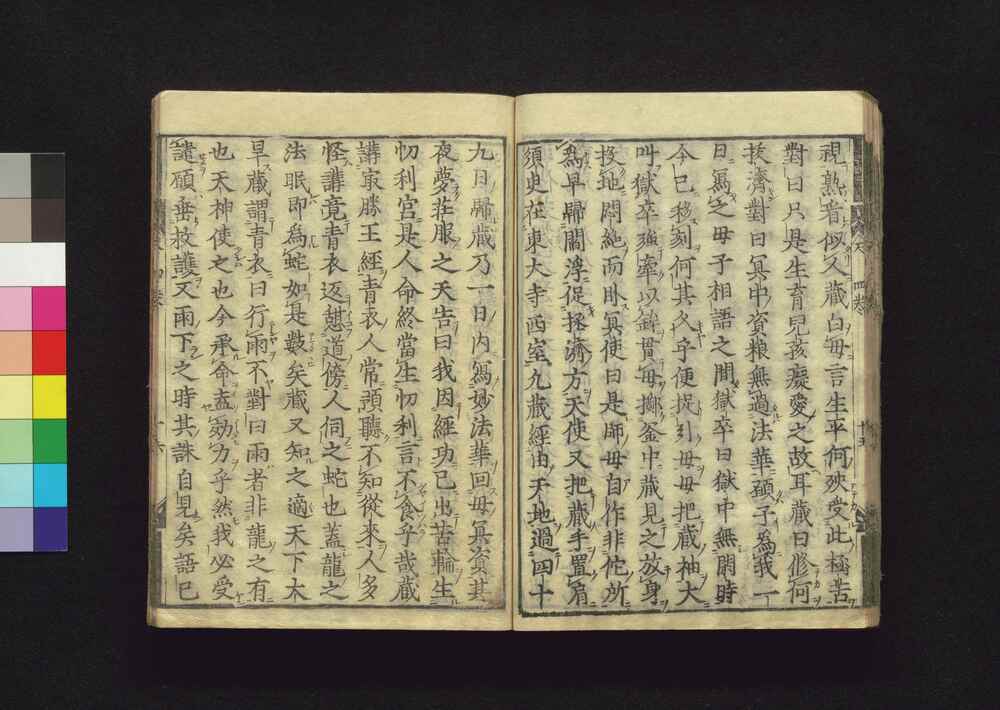 視熟看似人蔵白毎言生平何殃受此極苦
對曰只是生育兒孩癡愛之故耳蔵曰修何
抜濟對曰冥中資粮無過法華頭子為我一
日寫之母子相語之間獄卒曰獄中無閑時
今已移刻何其久乎便捉引母母把蔵袖大
叫獄卒強牽以鉾貫母擲釜中蔵見之放身
投地悶絶而卧冥使曰是師母自作非佗所
為早歸閻浮促拯濟方天使又把蔵手置肩
須史在東大寺西室九蔵經由天地過四十
九日歸蔵乃一日内寫妙法華回毋冥資其
夜夢荘服之天告曰我因經功已出苦輪生
忉利宮是人命終當生忉利言不食乎哉蔵
講㝡勝王經青衣人常預聽不知從來人多
怪講竟青衣返憇道傍人伺之蛇也蓋龍之
法眠即為蛇如是數矣蔵又知之適天下大
旱蔵謂青衣曰行雨不對曰雨者非龍之有
也天神使之也今承命盍効力乎然我必受
譴願垂救護又雨下之時其誅自見矣語已
四巻
十五